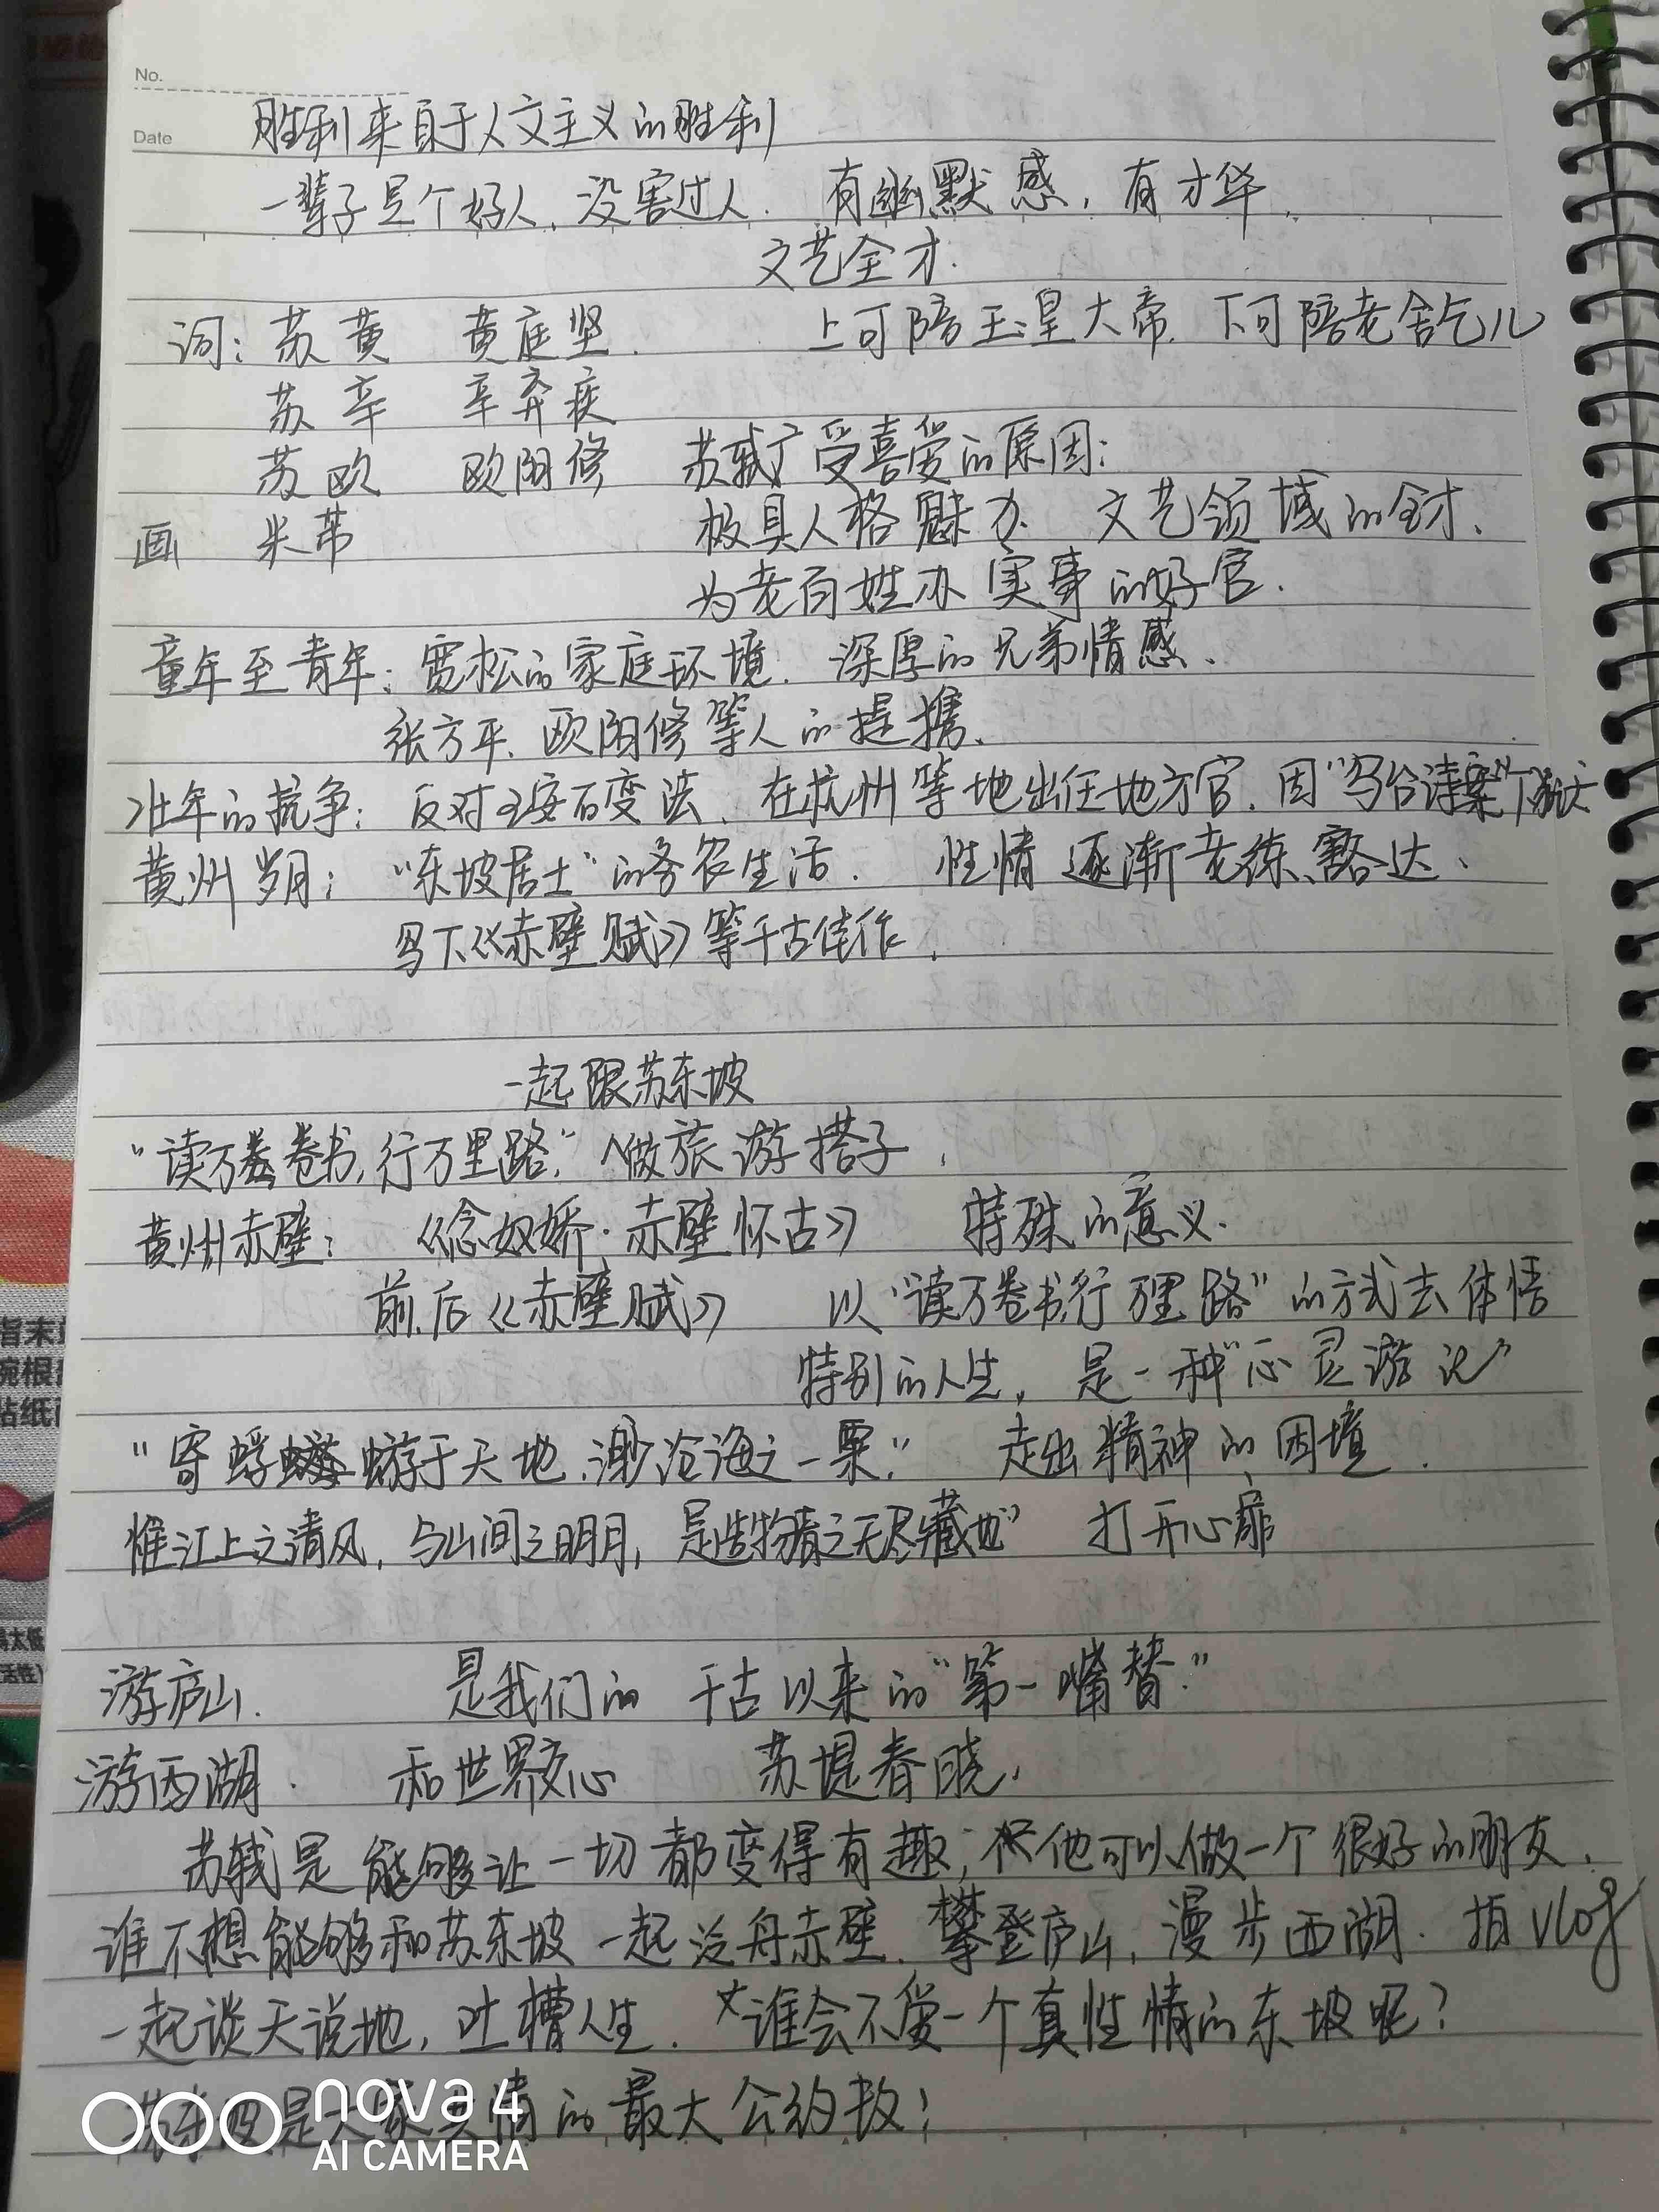 No.
Date
胜利来自于人文主义的胜利
一辈子是个好人、没害过人. 有幽默感,有才华.
文艺全才.
词: 苏黄 黄庭坚. 上可陪玉皇大帝. 下可陪老舍乞儿
苏辛 辛弃疾
苏欧 欧阳修 苏轼广受喜爱的原因:
画 米芾 极具人格魅力、文艺领域的全才、
为老百姓办实事的好官.
童年至青年: 宽松的家庭环境. 深厚的兄弟情感、
张方平、欧阳修等人的提携、
壮年的抗争: 反对王安石变法、在杭州等地出任地方官. 因"乌台诗案"下狱
黄州岁月: "东坡居士"的务农生活. 性情逐渐老练、豁达、
写下《赤壁赋》等千古佳作.
一起跟苏东坡
"读万卷书,行万里路." 做旅游搭子.
黄州赤壁: 《念奴娇·赤壁怀古》 特殊的意义.
前.后《赤壁赋》 以"读万卷书,行万里路"的方式去体悟
特别的人生, 是一种"心灵游记"
"寄蜉蝣于天地,渺沧海之一粟." 走出精神的困境.
惟江上之清风,与山间之明月,是造物者之无尽藏也" 打开心扉
游庐山. 是我们的 千古以来的"第一嘴替."
游西湖. 和世界交心 苏堤春晓.
苏轼是能够让一切都变得有趣; 他可以做一个很好的朋友.
谁不想能够和苏东坡一起泛舟赤壁、攀登庐山,漫步西湖. 拍vlog
一起谈天说地,吐槽人生. 谁会不爱一个真性情的东坡呢?
苏东坡是大家共情的最大公约数;
nova 4
AI CAMERA